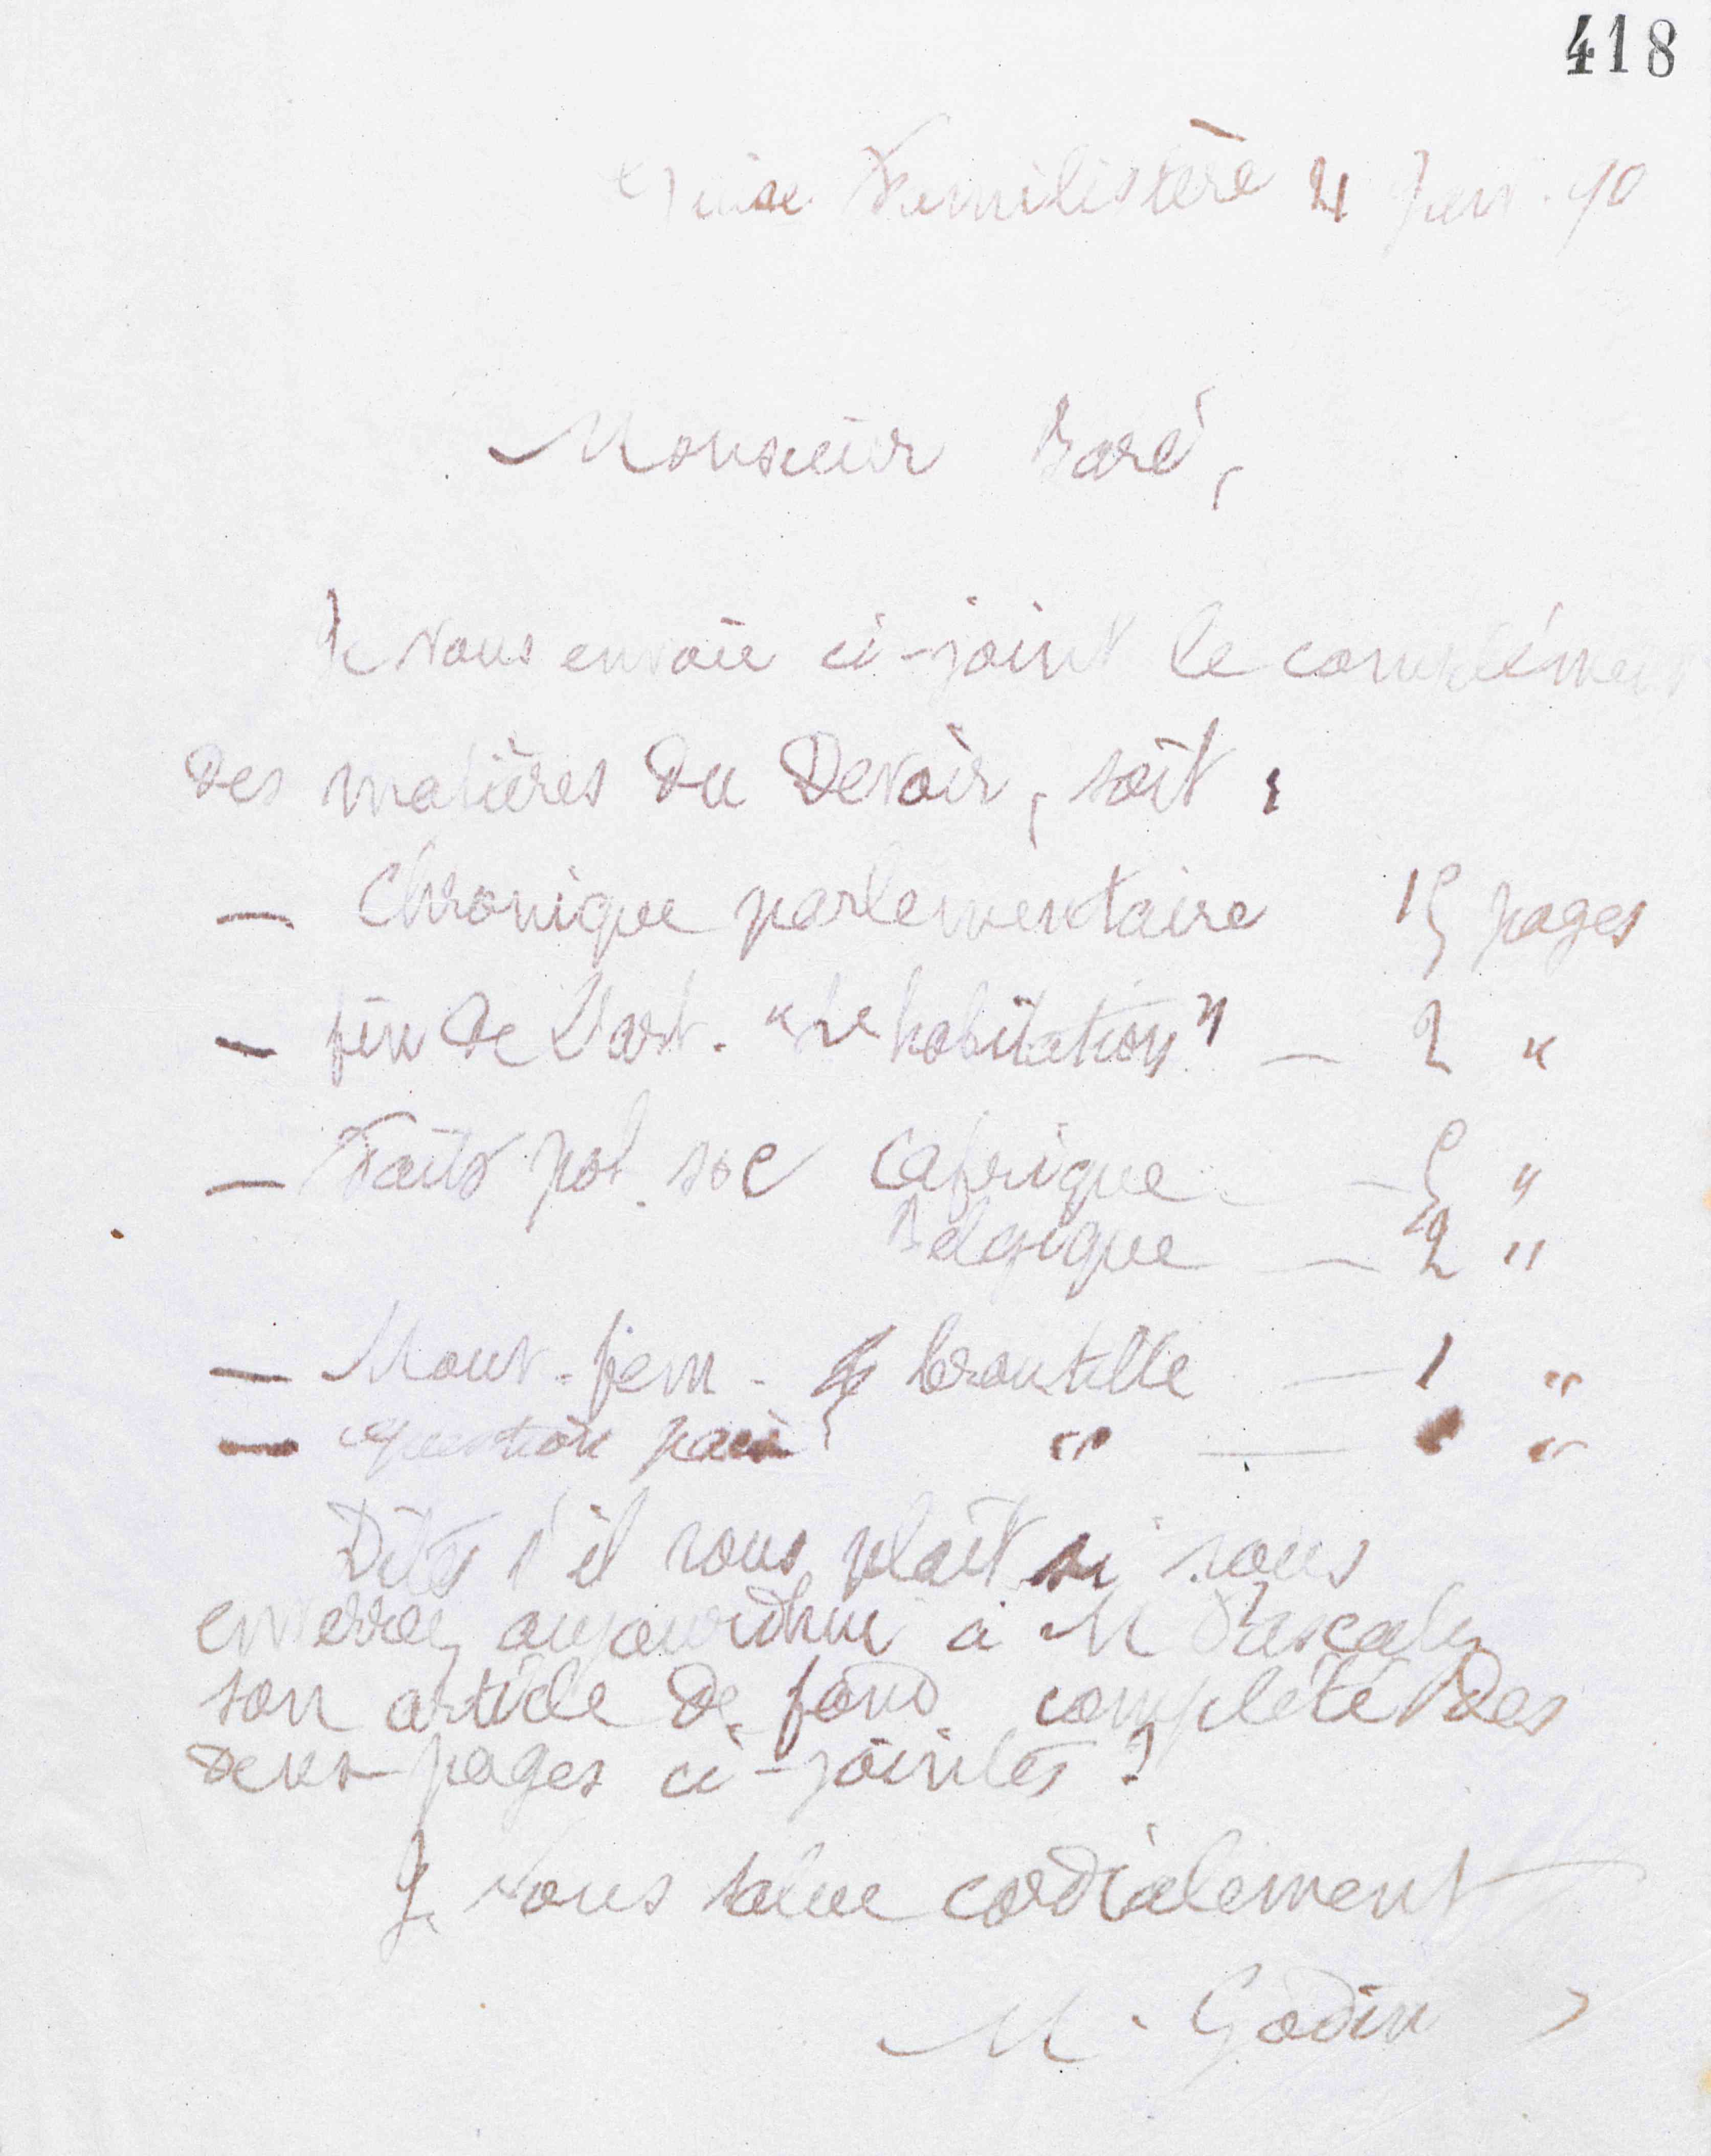 418
Guise Familistère 21 Janv. 90
Monsieur Baré,
Je vous envoie ci-joint le complément
des matières du Devoir, soit :
— Chronique parlementaire 15 pages
— fin de l'art. "L'habitation" — 2 "
— Faits pol. soc Cafrique — 5 "
Belgique — 2 "
— Mouv. fém. broutille — 1 "
— question paix " — "
Dites s'il vous plaît si vous
enverrez aujourd'hui à M Pascaly
son article de fond complété des
deux pages ci-jointes ?
Je vous salue cordialement
M. Godin